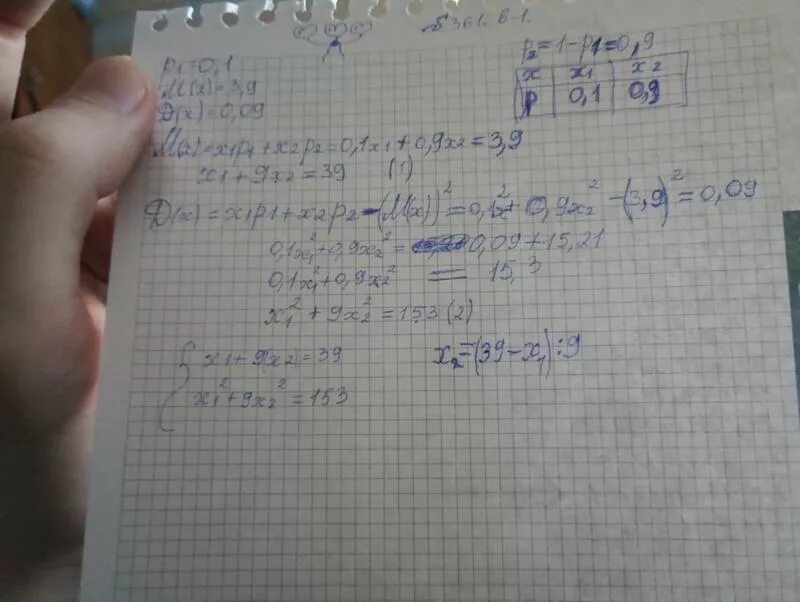 №361. В-1.
p₁=0,1
M(x)=3,9
D(x)=0,09
p₂=1-p₁=0,9
x | x₁ | x₂
p | 0,1 | 0,9
M(x)=x₁p₁+x₂p₂=0,1x₁+0,9x₂=3,9
x₁+9x₂=39 (1)
D(x)=x₁p₁+x₂p₂-(M(x))²=0,1x²+0,9x₂²-(3,9)²=0,09
0,1x₁²+0,9x₂²= 0,09+15,21
0,1x₁²+0,9x₂² = 15,3
x₁²+9x₂²=153 (2)
x₁+9x₂=39
x₂=(39-x₁):9
x₁²+9x₂²=153